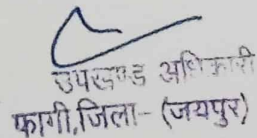 उपखण्ड अधिकारी
फागी,जिला- (जयपुर)